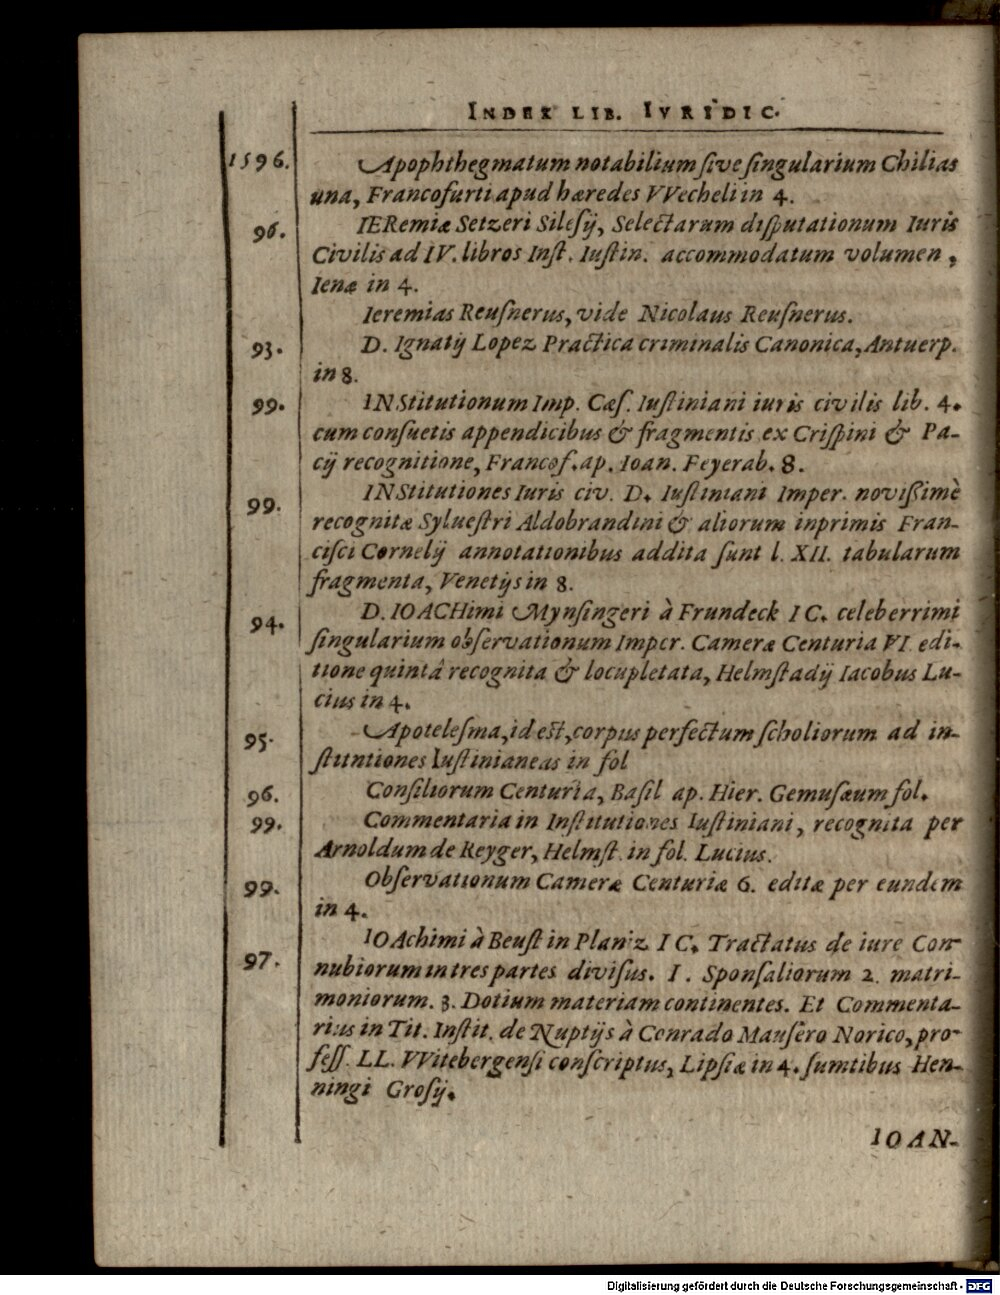 INDEX LIB. IVRIDIC.
1596. Apophthegmatum notabilium ſive ſingularium Chilias
una, Francofurti apud hæredes VVecheli in 4.
96. IERemiæ Setzeri Sileſij, Selectarum diſputationum Iuris
Civilis ad IV. libros Inſt. Iuſtin. accommodatum volumen,
Ienæ in 4.
Ieremias Reuſnerus, vide Nicolaus Reuſnerus.
93. D. Ignatij Lopez Practica criminalis Canonica, Antuerp.
in 8.
99. INStitutionum Imp. Cæſ. Iuſtiniani iuris civilis lib. 4.
cum conſuetis appendicibus & fragmentis ex Criſpini & Pa-
cij recognitione, Francof. ap. Ioan. Feyerab. 8.
99. INStitutiones Iuris civ. D. Iuſtiniani Imper. noviſſimè
recognitæ Sylueſtri Aldobrandini & aliorum inprimis Fran-
ciſci Cornelij annotationibus addita ſunt l. XII. tabularum
fragmenta, Venetijs in 8.
94. D. IOACHimi Mynſingeri à Frundeck IC. celeberrimi
ſingularium obſervationum Imper. Cameræ Centuria VI. edi-
tione quintâ recognita & locupletata, Helmſtadij Iacobus Lu-
cius in 4.
95. Apoteleſma, id eſt, corpus perfectum ſcholiorum ad in-
ſtituntiones Iuſtinianeas in fol
96. Conſiliorum Centuria, Baſil ap. Hier. Gemuſæum fol.
99. Commentaria in Inſtitutiones Iuſtiniani, recognita per
Arnoldum de Reyger, Helmſt. in fol. Lucius.
99. Obſervationum Cameræ Centuriæ 6. editæ per eundem
in 4.
97. IOAchimi à Beuſt in Planiz IC. Tractatus de iure Con-
nubiorum in tres partes diviſus. I. Sponſaliorum 2. matri-
moniorum. 3. Dotium materiam continentes. Et Commenta-
rius in Tit. Inſtit. de Nuptijs à Conrado Mauſero Norico, pro-
feſſ. LL. VVitebergenſi conſcriptus, Lipſiæ in 4. ſumtibus Hen-
ningi Groſij.
IOAN-
Digitalisierung gefördert durch die Deutsche Forschungsgemeinschaft - DFG